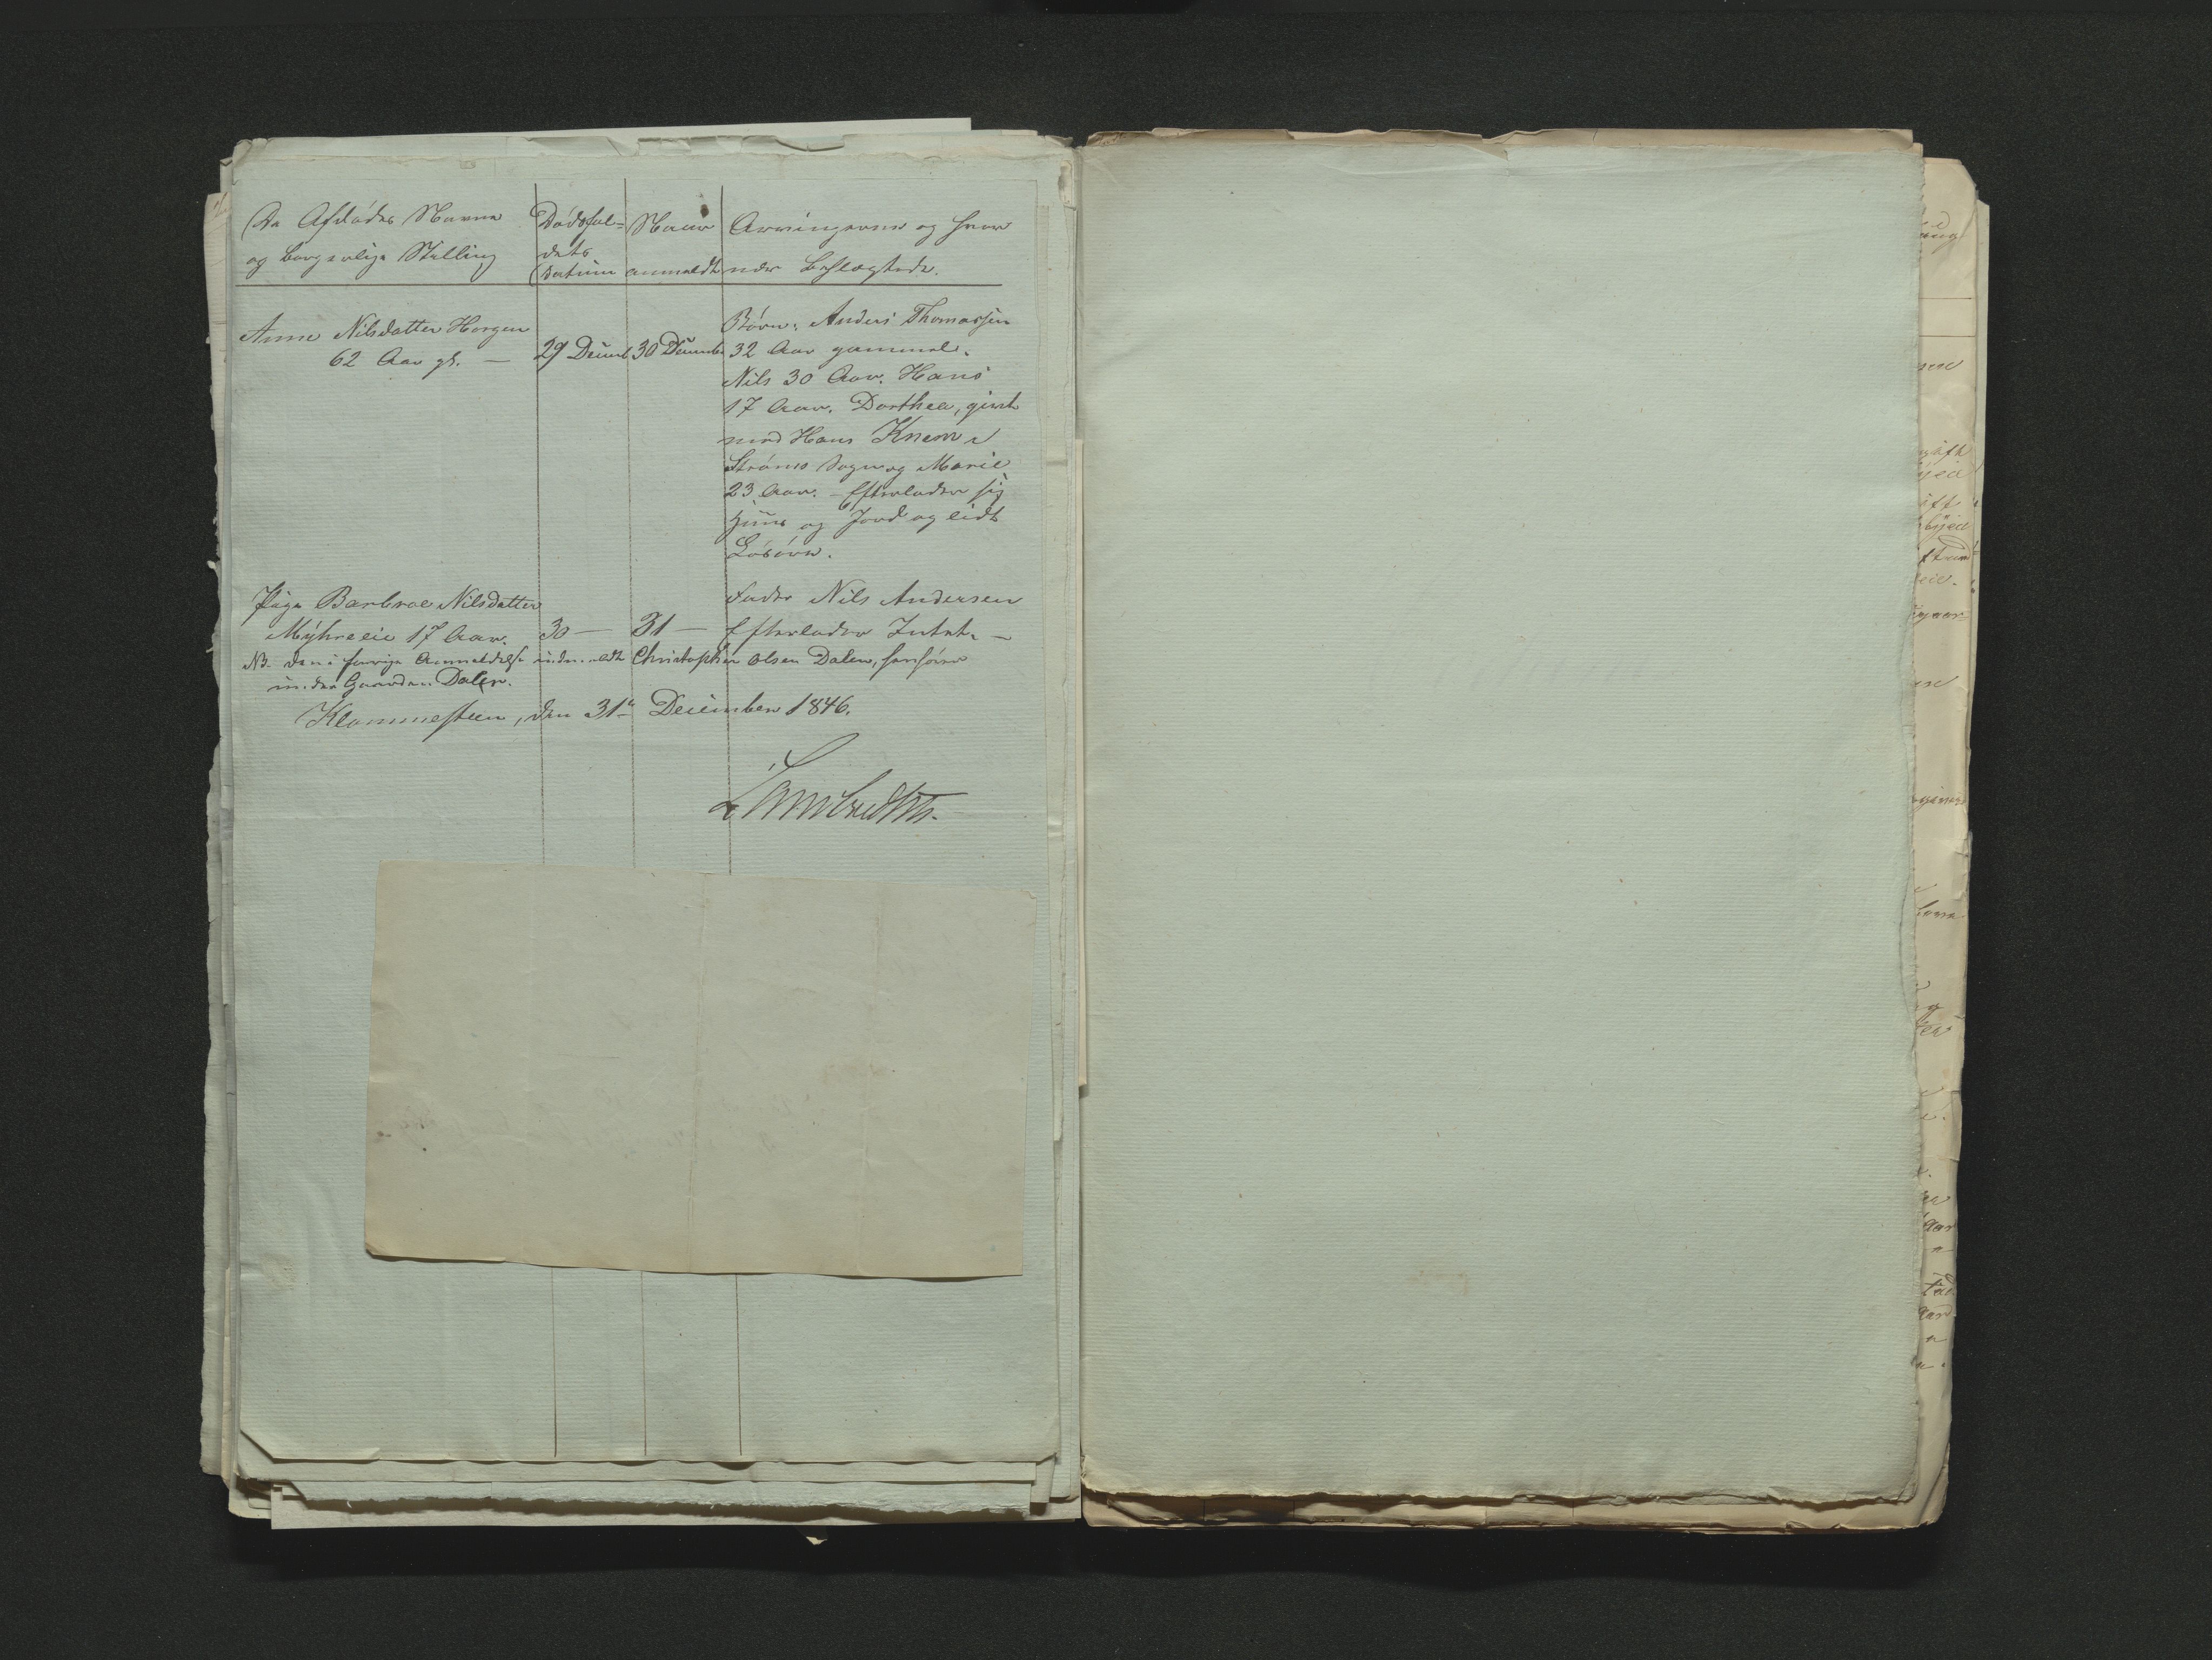 De Afdödes Navne
og borgerlige Stilling
Dödsfal-
dets
Datum
Naar
anmeldt
Arvingerne og hvor
nær beslægtede.
Anne Nilsdatter Horgen
62 Aar gl. —
29 Decemb
30 Decembr
Börn: Anders Thomassen
32 Aar gammel.
Nils 30 Aar. Hans
17 Aar. Dorthea, givt
med Hans Knem i
Ströms Sogn og Marie
23 Aar. – Efterlader sig
Huus og Jord og lidt
Lösöre.
Pige Barbroe Nilsdatter
Myhreeie 17 Aar.
30 —
31 —
Fader Nils Andersen
Efterlader Intet. —
NB. den i forrige Anmeldelse indmeldte Christopher Olsen Dalen, henhörer
under Gaarden Dalen.
Klommesteen, den 31te December 1846.
Lambrechts.